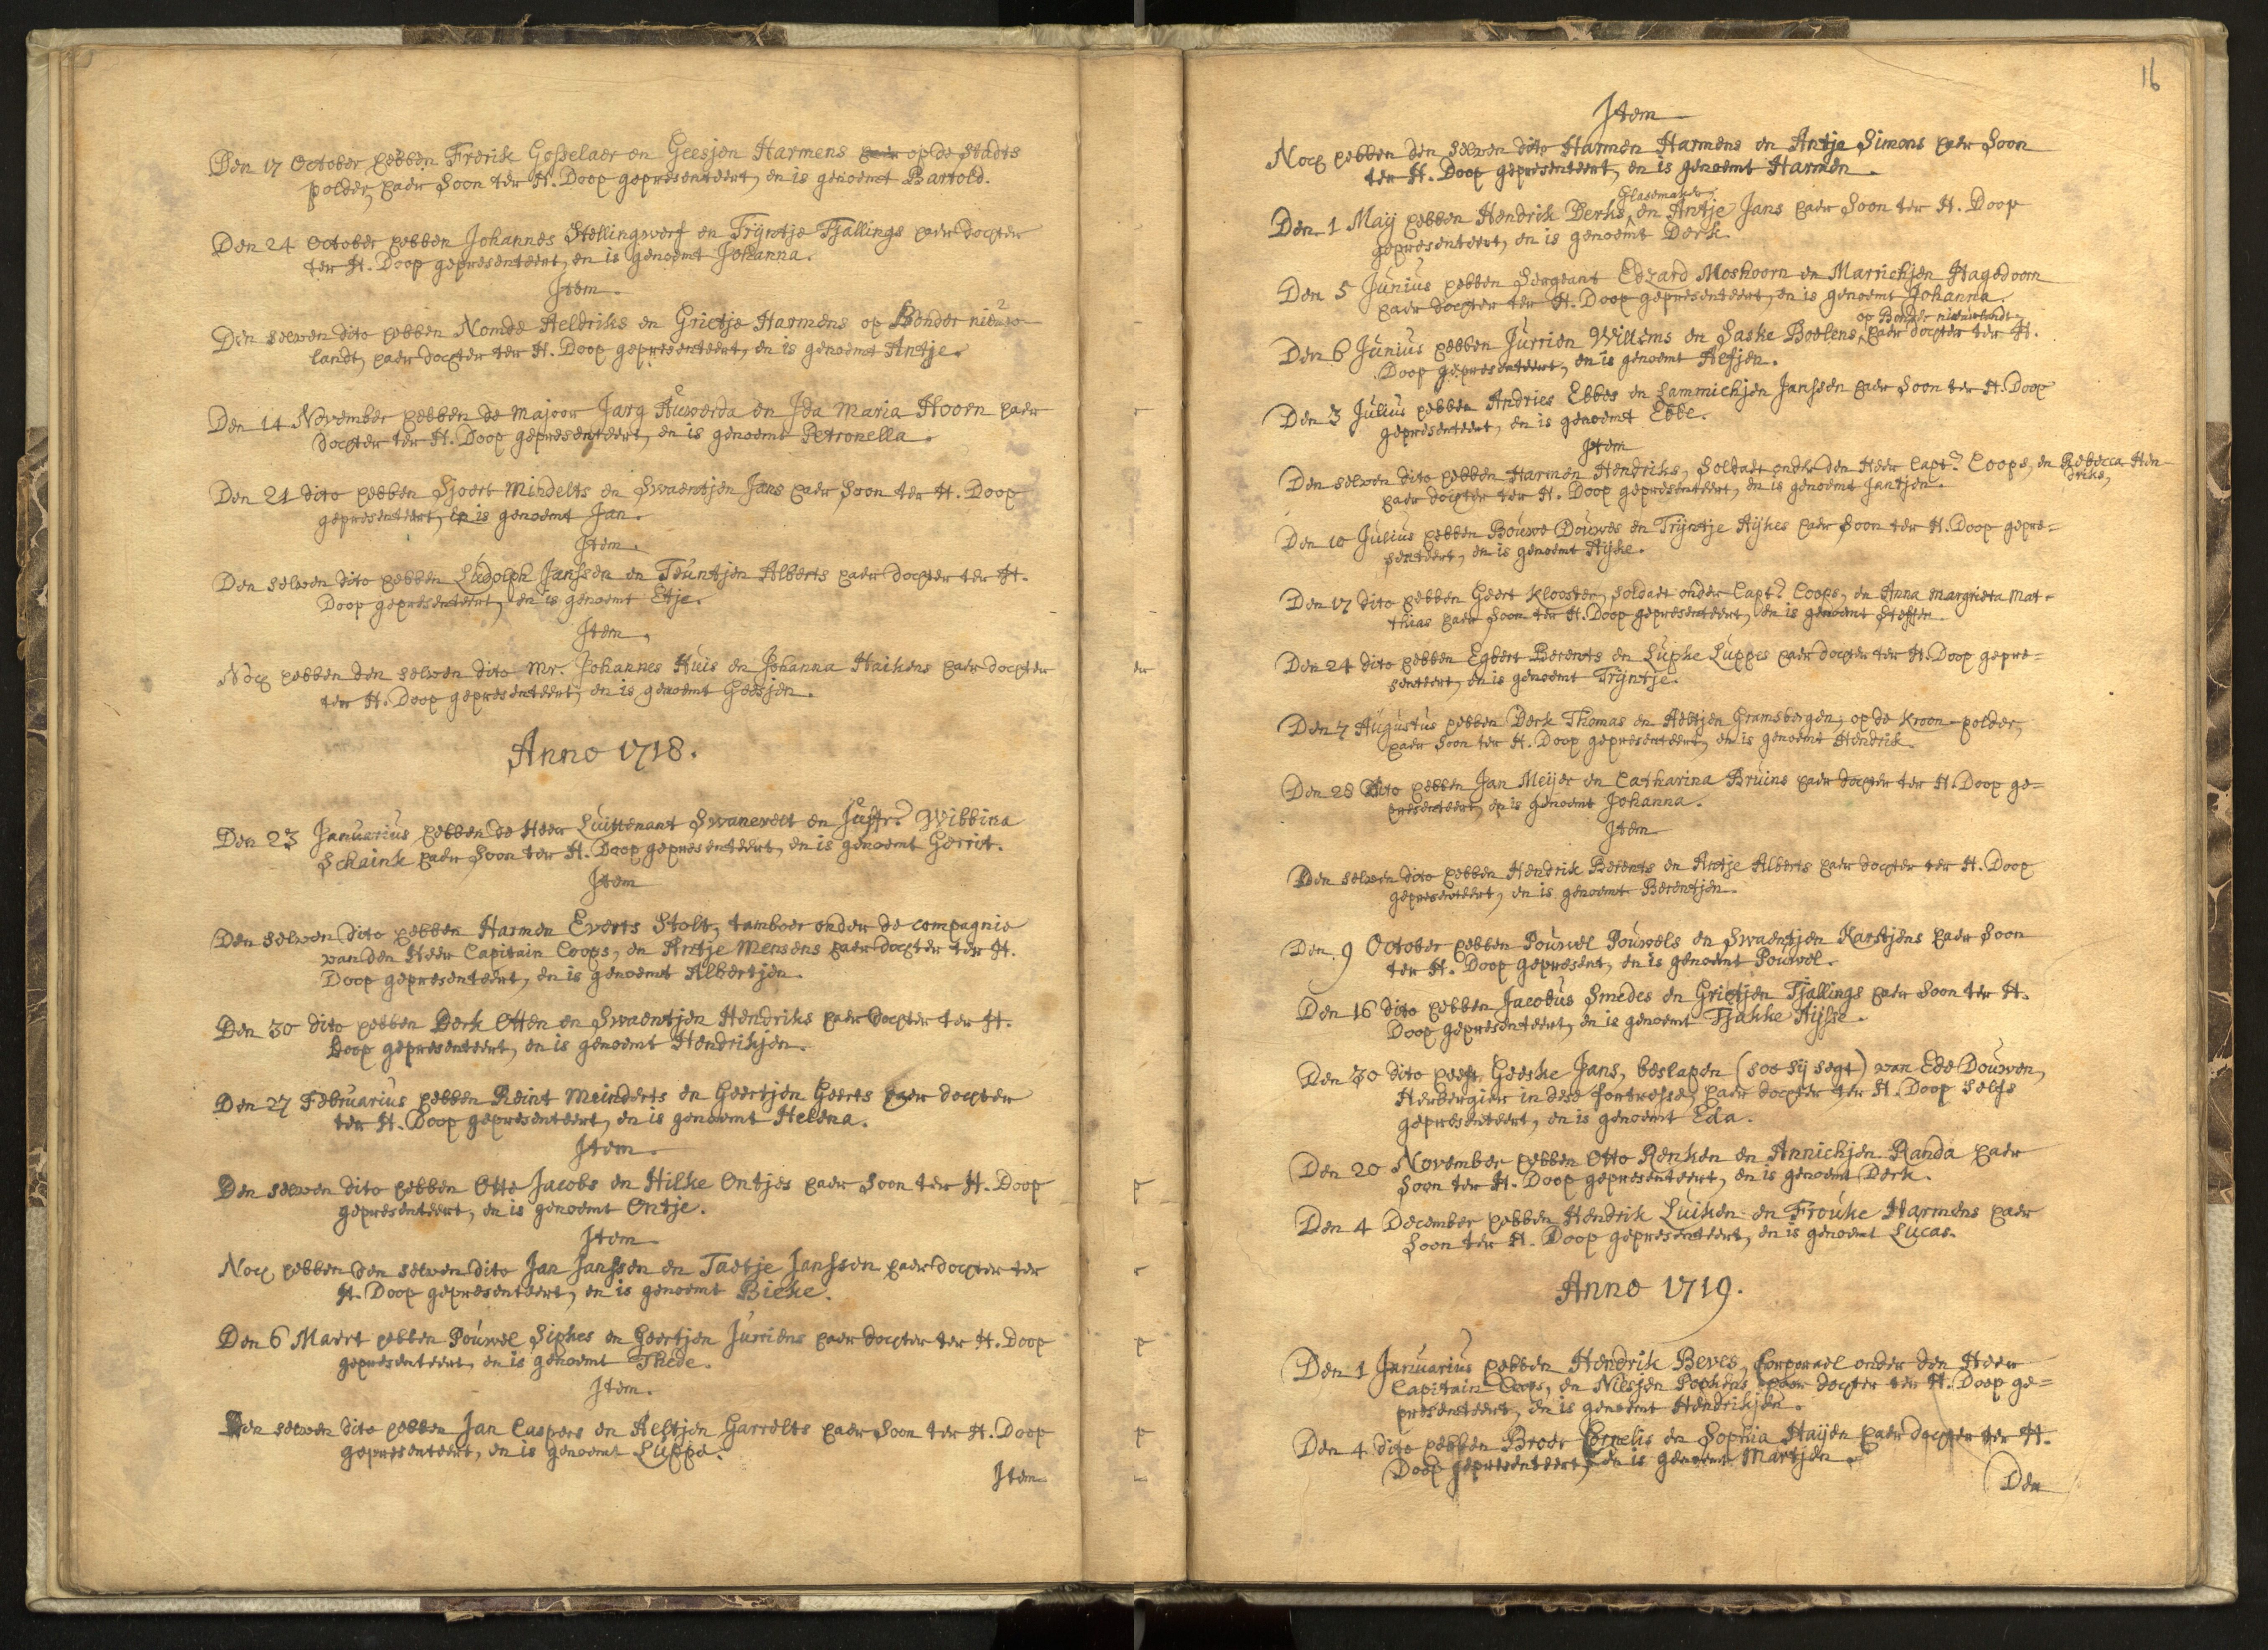 Den 17 October hebben Frerik Gosselaer en Geesjen Harmens haer op de Stadts
polder, haer Soon ter H. Doop gepresenteert, en is genoemt Bartold.
Den 24 October hebben Johannes Stellingwerf en Trijntje Tjallings haer dochter
ter H. Doop gepresenteert, en is genoemt Johanna.
Item.
Den selven dito hebben Nomde Heldriks en Grietje Harmens op Bonder nieuw
landt, haer dochter ter H. Doop gepresenteert, en is genoemt Antje.
Den 14 November hebben de Majoor Jarg Auwerda en Ida Maria Hoorn haer
dochter ter H. Doop gepresenteert, en is genoemt Petronella.
Den 21 dito hebben Sjoert Mindelts en Swaentjen Jans haer Soon ter H. Doop
gepresenteert, en is genoemt Jan.
Item.
Den selven dito hebben Ludolph Janssen en Teuntjen Alberts haer dochter ter H.
Doop gepresenteert, en is genoemt Etje.
Item.
Noch hebben den selven dito Mr. Johannes Huis en Johanna Haikens haer dochter
ter H. Doop gepresenteert, en is genoemt Geesjen.
Anno 1718.
Den 23 Januarius hebben de Heer Luittenant Swanevelt en Juffr. Wibbina
Schaink haer Soon ter H. Doop gepresenteert, en is genoemt Gerrit.
Item
Den selven dito hebben Harmen Everts Stolt, tamboer onder de compagnie
van den Heer Capitain Coops, en Antje Mensens haer dochter ter H.
Doop gepresenteert, en is genoemt Albertjen.
Den 30 dito hebben Derk Otten en Swaentjen Hendriks haer dochter ter H.
Doop gepresenteert, en is genoemt Hendrikjen.
Den 27 Februarius hebben Reint Meinderts en Geertjen Geerts haer dochter
ter H. Doop gepresenteert, en is genoemt Helena.
Item.
Den selven dito hebben Otto Jacobs en Hilke Ontjes haer Soon ter H. Doop
gepresenteert, en is genoemt Ontje.
Item
Noch hebben den selven dito Jan Janssen en Taetje Janssen haer dochter ter
H. Doop gepresenteert, en is genoemt Bieke.
Den 6 Maert hebben Pouwel Siphes en Geertjen Jurriens haer dochter ter H. Doop
gepresenteert, en is genoemt Thede.
Item.
Den selven dito hebben Jan Caspers en Aeltjen Garrelts haer Soon ter H. Doop
gepresenteert, en is genoemt Luppe.
Item
16
Item
Noch hebben den selven dito Harmen Harmens en Antje Simons haer Soon
ter H. Doop gepresenteert, en is genoemt Harmen.
Glasemaker,
Den 1 Maij hebben Hendrik Derks, en Antje Jans haer Soon ter H. Doop
gepresenteert, en is genoemt Derk.
Den 5 Junius hebben Sergeant Edzard Moshoorn en Marrichjen Hagedoorn
haer dochter ter H. Doop gepresenteert, en is genoemt Johanna.
op Bonder nieuwlandt
Den 6 Junius hebben Jurrien Willems en Saske Boelens, haer dochter ter H.
Doop gepresenteert, en is genoemt Aefjen.
Den 3 Julius hebben Andries Ebbes en Lammichjen Janssen haer Soon ter H. Doop
gepresenteert, en is genoemt Ebbe.
Item
Den selven dito hebben Harmen Hendriks, Soldaet onder den Heer Capt. Coops, en Rebecca Hen-
driks,
haer dochter ter H. Doop gepresenteert, en is genoemt Jantjen.
Den 10 Julius hebben Bouwe Douwes en Trijntje Hijkes haer Soon ter H. Doop gepre=
senteert, en is genoemt Hijke.
Den 17 dito hebben Geert Klooster, Soldaet onder Capt. Coops, en Anna Margrieta Mat-
thias haer Soon ter H. Doop gepresenteert, en is genoemt Steffen.
Den 24 dito hebben Egbert Berents en Luphe Luppes haer dochter ter H. Doop gepre=
senteert, en is genoemt Trijntje.
Den 7 Augustus hebben Derk Thomas en Aeltjen Gramsbergen, op de Kroon-polder,
haer Soon ter H. Doop gepresenteert, en is genoemt Hendrik.
Den 28 dito hebben Jan Meijer en Catharina Bruins haer dochter ter H. Doop ge=
presenteert, en is genoemt Johanna.
Item
Den selven dito hebben Hendrik Berents en Antje Alberts haer dochter ter H. Doop
gepresenteert, en is genoemt Berentjen.
Den 9 October hebben Pouwel Pouwels en Swaentjen Karstjens haer Soon
ter H. Doop gepresent, en is genoemt Pouwel.
Den 16 dito hebben Jacobus Smedes en Grietjen Tjallings haer Soon ter H.
Doop gepresenteert, en is genoemt Tjakke Hijsse.
Den 30 dito heeft Geeske Jans, beslapen (soo sij segt) van Ede Douwen,
Herbergier in dese fortresse, haer dochter ter H. Doop selfs
gepresenteert, en is genoemt Eda.
Den 20 November hebben Otto Renken en Annichjen Randa haer
Soon ter H. Doop gepresenteert, en is genoemt Derk.
Den 4 December hebben Hendrik Luiken en Frouke Harmens haer
Soon ter H. Doop gepresenteert, en is genoemt Lucas.
Anno 1719.
Den 1 Januarius hebben Hendrik Beves, Corporael onder den Heer
Capitain Coops, en Niesjen Pophens haer dochter ter H. Doop ge=
presenteert, en is genoemt Hendrikjen.
Den 4 dito hebben Broer Cornelis en Sophia Haijen haer dochter ter H.
Doop gepresenteert, en is genoemt Martjen.
Den